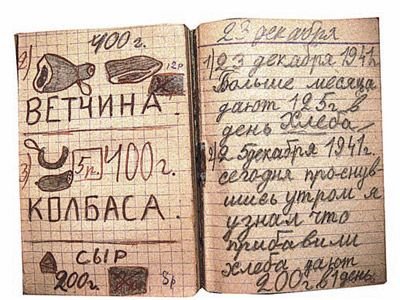 400 г.
2)
12р
ВЕТЧИНА.
3) 5р. 400 г.
КОЛБАСА.
СЫР
200г. 8р
23 декабря
1) 23 декабря 1941г.
Больше месяца
дают 125г в
день Хлеба
2) 25 декабря 1941г.
сегодня проснув-
шись утром я
узнал что
прибавили
хлеба дают
200г. в 1 день